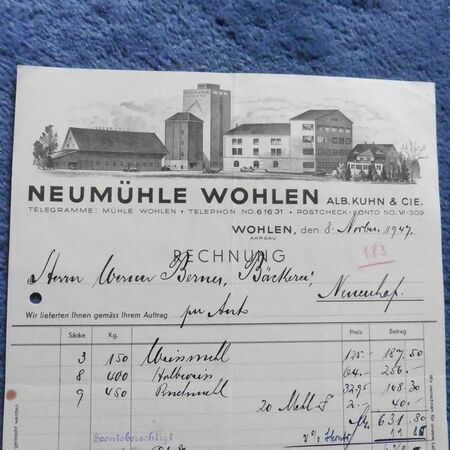 NEUMÜHLE
NEUMÜHLE WOHLEN ALB. KUHN & CIE.
TELEGRAMME: MÜHLE WOHLEN • TELEPHON NO. 6 16 31 • POSTCHECK-KONTO NO. VI-309
WOHLEN, den 8. Novber 1947.
AARGAU
183
RECHNUNG
Herrn Werner Berner, Bäckerei,
Neuenhof.
Wir lieferten Ihnen gemäss Ihrem Auftrag per Auto
Säcke Kg. Preis Betrag
3 150 Weissmehl 125.- 187.50
8 400 Halbweiss 64.- 256.-
9 450 Ruchmehl 32.95 148.30
20 Mehl-S 2.- 40.-
Fr. 631.80
Scontoberechtigt